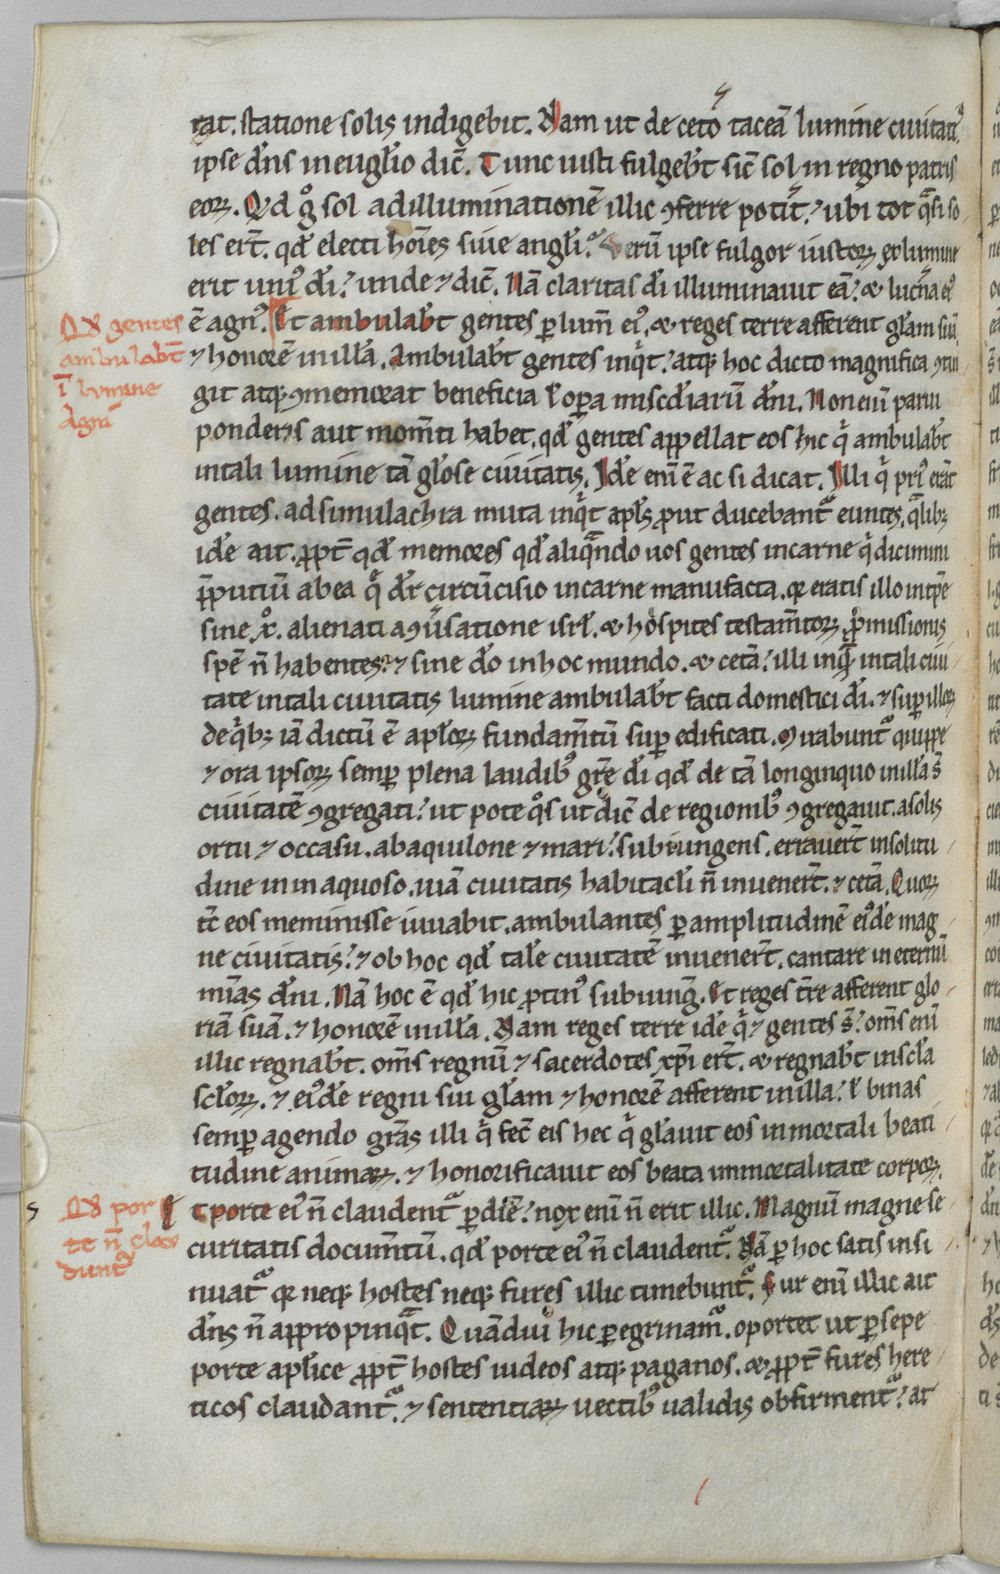 rat. statione solis indigebit. Nam ut de ceto taceā lumine ciuitatꝰ.
ipse dn̄s in euḡlio dic̄. Tunc iusti fulgeb̄t sic̄ sol in regno patris
eoꝝ. Qd g̊ sol ad illuminationē illic ꝯferre potit̄? ubi tot qᷓsi so
les ert̄. qd̄ electi hoīes siue angl̄i. Verū ipse fulgor iustoꝝ ex lumine
erit uniꝰ dī? unde ⁊ dic̄. Nā claritas dī illuminauit eā? & luc̄na eiꝰ
ē agnꝰ. Et ambulab̄t gentes ꝑ lum̄ eiꝰ, & reges terre afferent gl̄am suā
⁊ honorē in illā. Ambulab̄t gentes inqͥt? atqꝫ hoc dicto magnifica ꝯtin
git atqꝫ ꝯmemorat beneficia ł oꝑa misc̄diarū dn̄i. Non enī parui
ponderis aut mom̄ti habet, qd̄ gentes appellat eos hic qͥ ambulab̄t
in tali lumine tā gl̄ose ciuitatis. Id̄e enī ē ac si dicat. Illi qͥ priꝰ erāt
gentes. ad simulachra muta inqͥt apl̄s ꝓut ducebantᷣ euntes, qᷓlibꝫ
id̄e ait. ꝓpt̄ qd̄ memores qd̄ aliqᷓndo uos gentes in carne qͥ dicimini
p̄putiū ab ea qͣ dr̄ circūcisio in carne manufacta. qꝛ eratis illo in tp̄e
sine xͦ. alienati a ꝯu̇satione isrl̄. & hospites testam̄toꝝ, ꝓmissionis
spē n̄ habentes? ⁊ sine dō in hoc mundo. & cetā? illi inqᷓ in tali ciui
tate in tali ciuitatis lumine ambulab̄t facti domestici dī. ⁊ suꝑ illoꝝ
de qͥbꝫ iā dictū ē apl̄oꝝ fundam̄tū suꝑ edificati. Iuuabuntᷣ quippe
⁊ ora ipsoꝝ semꝑ plena laudibꝰ gr̄e dī qd̄ de tā longinquo in illā s̄
ciuitatē ꝯgregati? ut pote qͦs ut dic̄ de regionibꝰ ꝯgregauit. a solis
ortu ⁊ occasu. ab aquilone ⁊ mari? subiungens. errauer̄t in solitu
dine in inaquoso. uiā ciuitatis habitacl̄i n̄ inuener̄t. ⁊ cetā. Quoꝝ
tc̄ eos meminisse iuuabit. ambulantes ꝑ amplitudinē eiꝰd̄e mag
ne ciuitatis? ⁊ ob hoc qd̄ tale ciuitatē inuener̄t. cantare in eternū
mīas dn̄i. Nā hoc ē qd̄ hic ꝓtinꝰ subiunḡ. Et reges t̄re afferent glo
riā suā. ⁊ honorē in illā. Nam reges terre id̄e qͥ ⁊ gentes s̄? oms̄ enī
illic regnab̄t. oms̄ regnū ⁊ sacerdotes xp̄i ert̄. & regnab̄t in scl̄a
scl̄oꝝ. ⁊ eiꝰd̄e regni sui gl̄am ⁊ honorē afferent in illa? ł binas
semꝑ agendo grās illi qͥ fec̄ eis hec qͥ gl̄auit eos inmortali beati
tudine animaꝝ. ⁊ honorificauit eos beata immortalitate corpoꝝ.
Et porte eiꝰ n̄ claudentᷣ ꝑ diē? nox enī n̄ erit illic. Magnū magne se
curitatis docum̄tū. qd̄ porte eiꝰ n̄ claudentᷣ. Nā ꝑ hoc satis insi
nuatᷣ qꝛ neqꝫ hostes neqꝫ fures illic timebuntᷣ. Fur enī illic ait
dn̄s n̄ appropinqᷓt. Quādiu hic ꝑegrinamᷣ. oportet ut ꝑ sepe
porte apl̄ice ꝓpt̄ hostes iudeos atqꝫ paganos. & ꝓpt̄ fures here
ticos claudantᷣ. ⁊ sententiaꝝ uectibꝰ ualidis obfirmentᷣ? at
Qd gentes
ambulabt̄
ī lumine
Agni
Qd por
te n̄ clau
duntᷣ